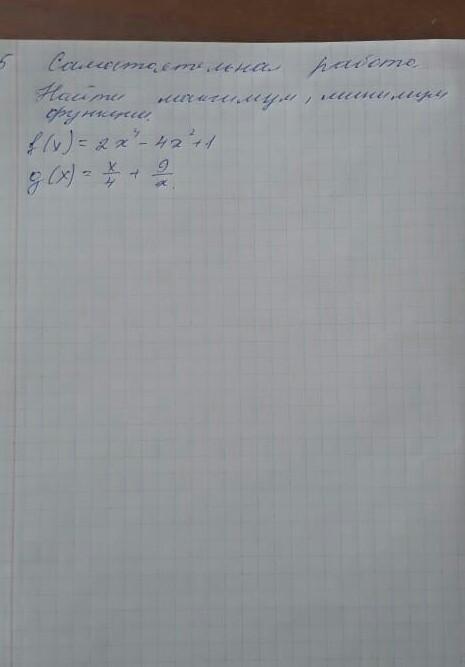 5 Самостоятельная работа.
Найти максимум, минимум
функции.
f(x) = 2x⁴ - 4x² + 1
g(x) = x/4 + 9/x.